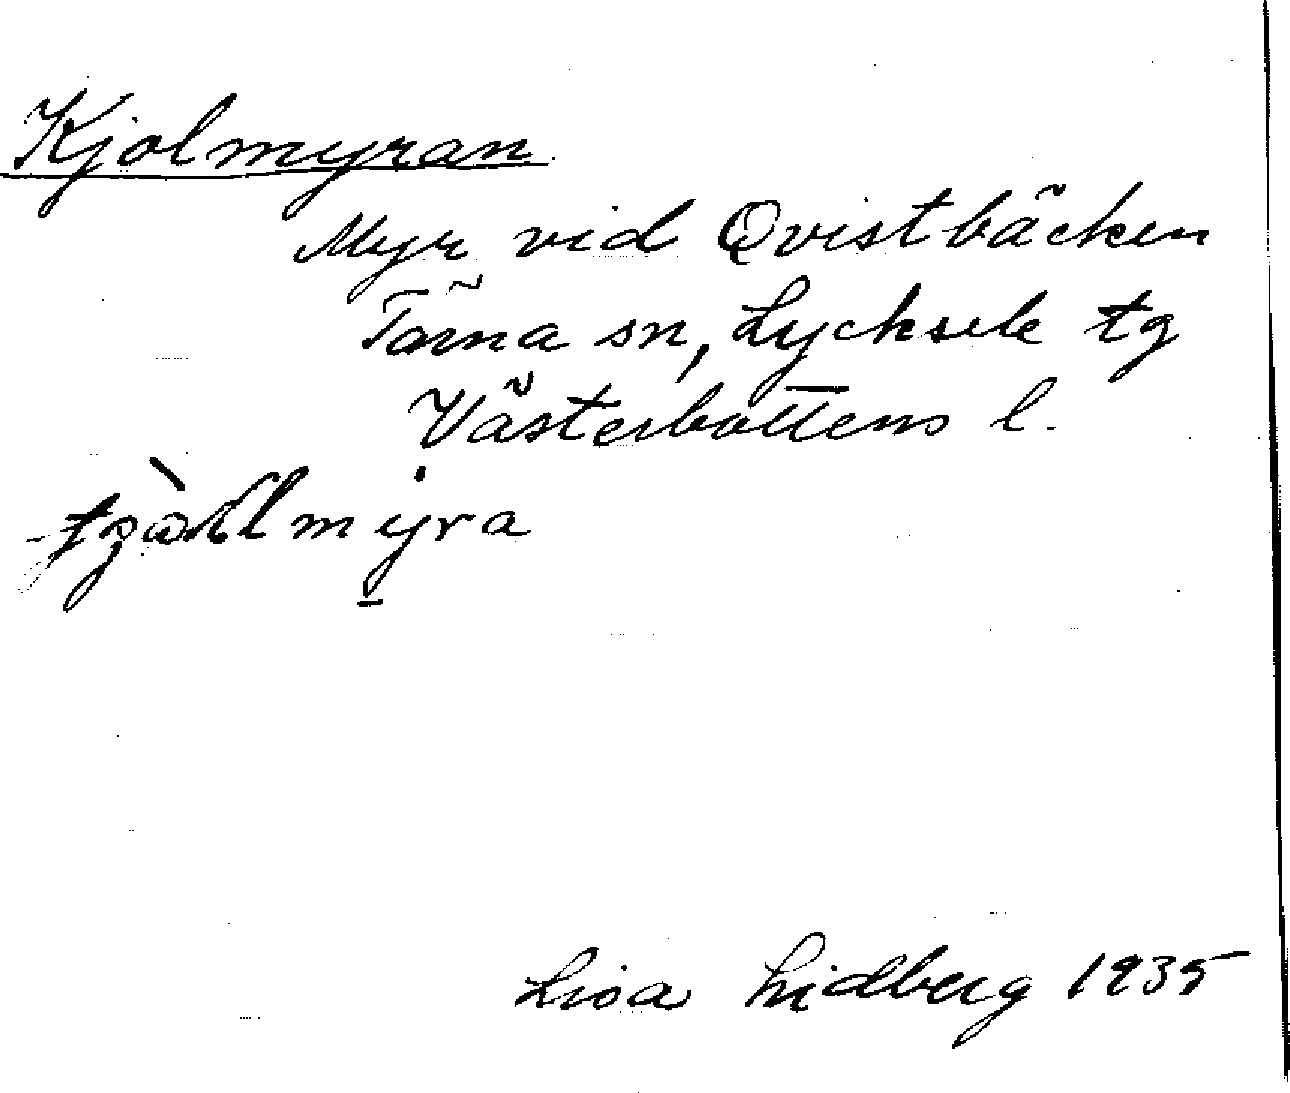 Kjolmyran
Myr vid Qvistbäcken
Tärna sn, Lycksele tg
Västerbottens l.
Lisa Lidberg 1935